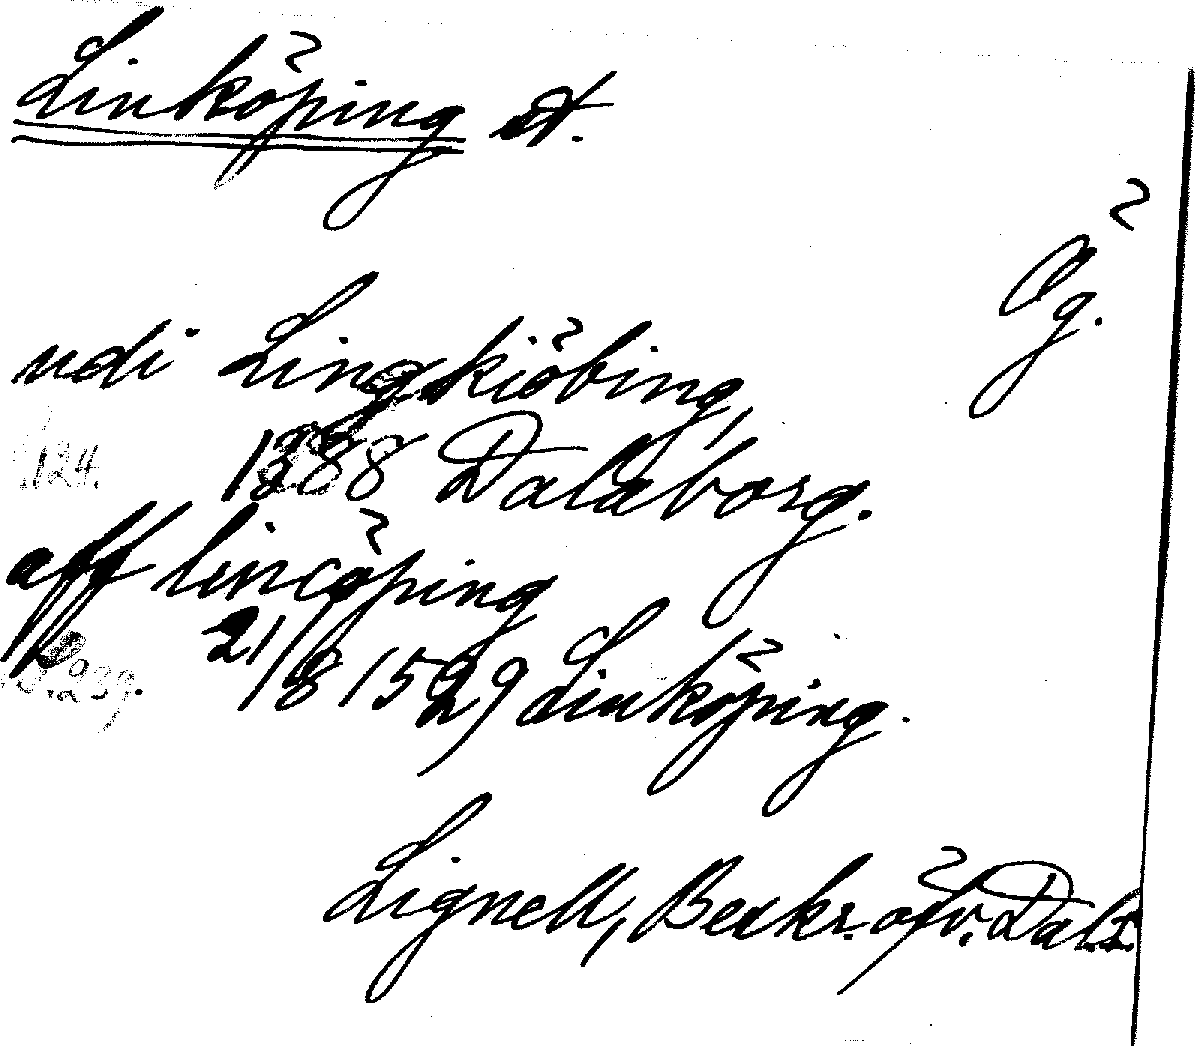 Linköping st.
Ög.
udi Lingkiöbing,
1388 Dalaborg.
s. 124.
aff lincöping
21/8 1529 Linköping.
s. 239.
Lignell, Beskr. öfv. Dal I.